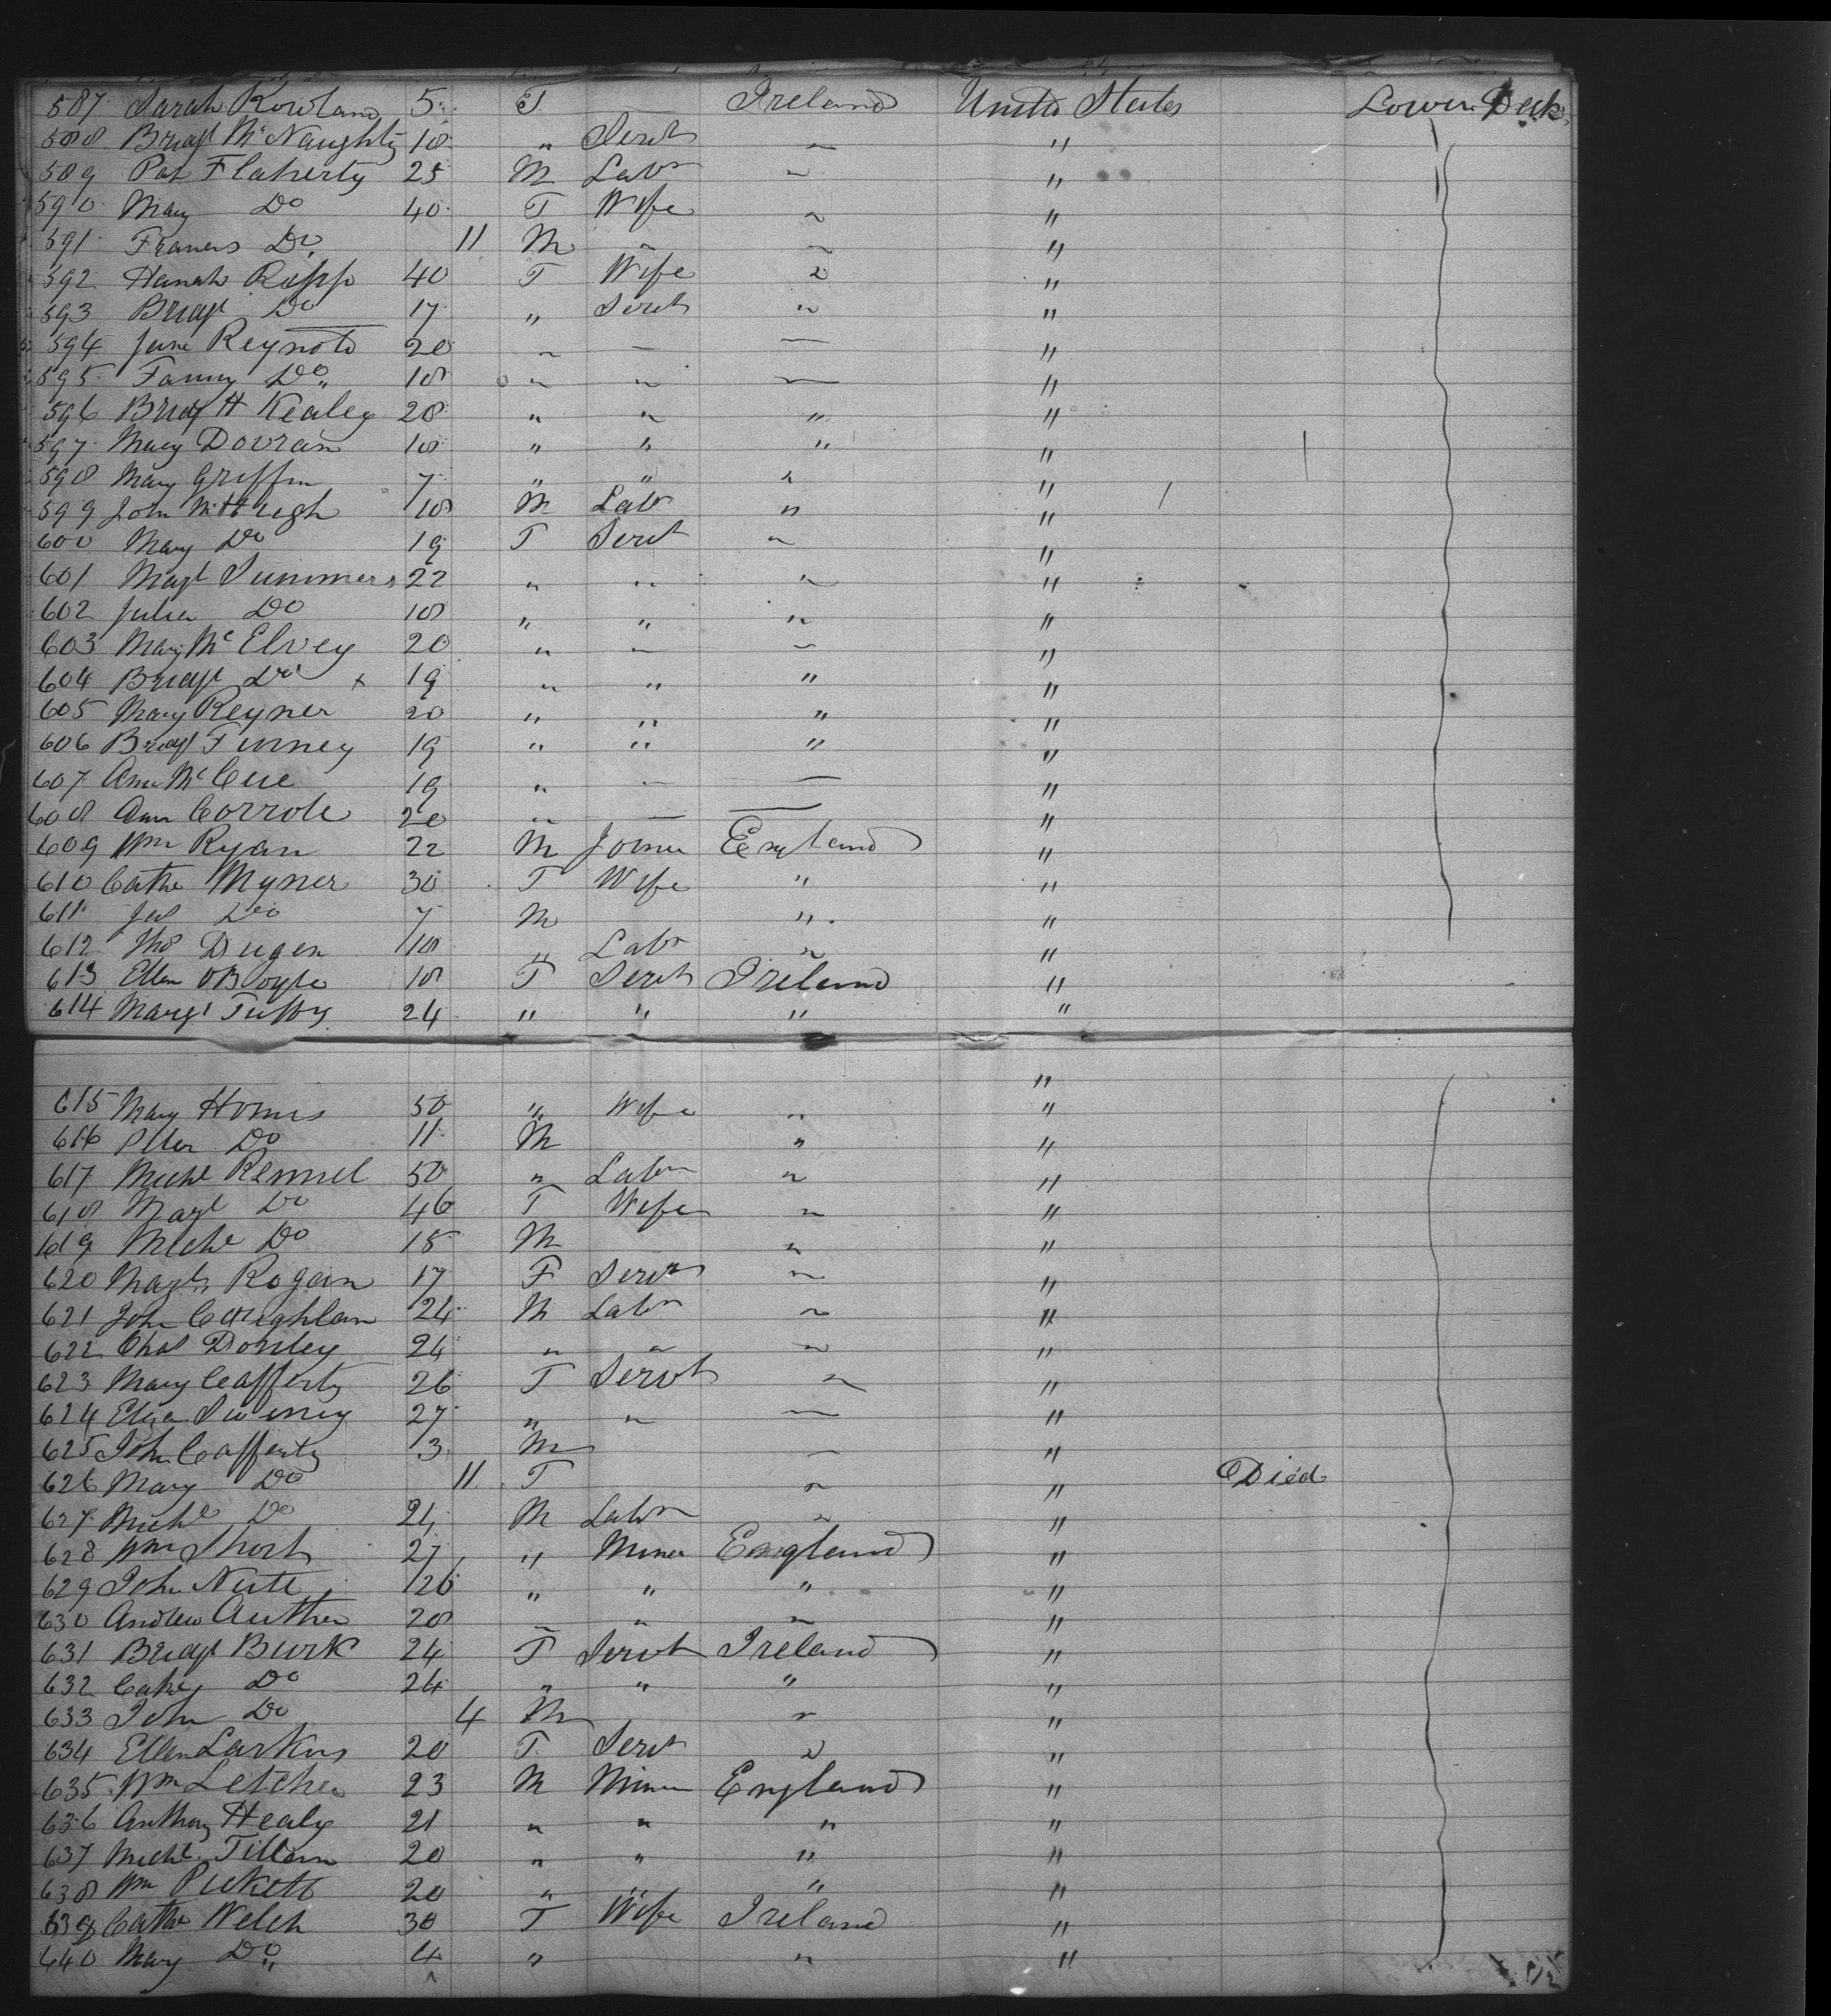 587 Sarah Rowland 5 F Ireland United States Lower Deck
588 Bridgt McNaughty 18 " Servt ~ "
589 Pat Flaherty 25 M Labr ~ "
590 Mary Do 40 F Wife ~ "
591 Francis Do 11 M ~ ~ "
592 Hanah 40 F Wife " "
593 Bridgt Do 17 " Servt ~ "
594 Jane Reynold 20 ~ — — "
595 Fanny Do 18 ~ ~ — "
596 Bridgt H Kealey 28 " ~ " "
597 Mary Dovran 18 " " " "
598 Mary Griffin 7 " " " "
599 John McHugh 18 M Labr " "
600 Mary Do 19 F Servt ~ "
601 Magt Summers 22 " " ~ "
602 Julia Do 18 " " " "
603 Mary McElvey 20 " ~ ~ "
604 Bridgt Do x 19 " " " "
605 Mary Reyner 20 " " " "
606 Bridgt Finney 19 " " " "
607 Ann McCue 19 " — — "
608 Ann Corrole 20 " — — "
609 Wm Ryan 22 M Joiner England "
610 Cathe Myner 30 F Wife " "
611 Jas Do 7 M " "
612 Thos Dugen 18 " Labr " "
613 Ellen OBoyle 18 F Servt Ireland "
614 Margt Tuffy 24 " " " "
"
615 Mary Homes 50 " Wife " "
616 Do 11 M " "
617 Michl Rennel 50 " Labr ~ "
618 Magt Do 46 F Wife ~ "
619 Michl Do 15 M " "
620 Magt Rogan 17 F Servt ~ "
621 John Coughlan 24 M Labr ~ "
622 Chas Donley 24 " " ~ "
623 Mary Cafferty 26 F Servt ~ "
624 Eliza Sweeney 27 " ~ — "
625 John Cafferty 3 M — "
626 Mary Do 11 F ~ " Died
627 Michl Do 24 M Labr ~ "
628 Wm Short 27 " Miner England "
629 John Nute 26 " " " "
630 Andrew Auther 28 ~ " ~ "
631 Bridgt Burk 24 F Servt Ireland "
632 Cathe Do 24 " " " "
633 John Do 4 M ~ "
634 Ellen Larkins 20 F Servt " "
635 Wm Letcher 23 M Miner England "
636 Anthony Healy 21 " " " "
637 Michl 20 " " " "
638 Wm Pickett 20 " " " "
639 Cathe Welch 30 F Wife Ireland "
640 Mary Do 4 " " "